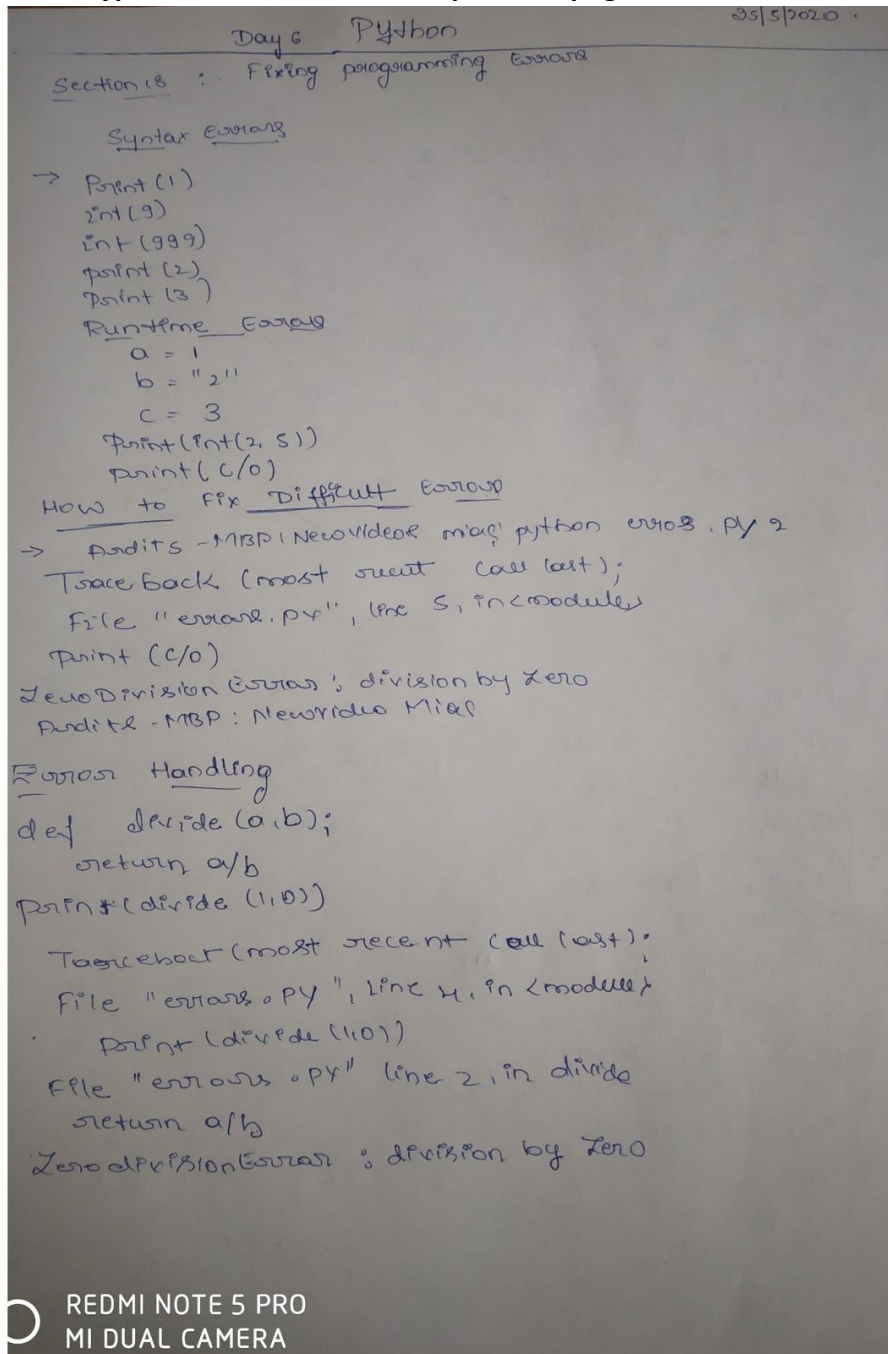 Day 6 Python 25/5/2020.
Section 18 : Fixing programming Errors
Syntax Errors
→ Print (1)
int (9)
int (999)
print (2)
Print (3)
Runtime Errors
a = 1
b = "2"
c = 3
Print (int (2, 5))
print ( c/0)
How to Fix Difficult Errors
→ Ardits - MBP : Newvideos python errors . py 2
Trace back (most recent call last);
File "errors. py", line 5, in <module>
print (c/0)
Zero Division Error : division by zero
Ardits - MBP : Newvideo
Error Handling
def divide (a,b);
return a/b
print (divide (1,0))
(most recent call last):
File "errors . py", Line 4, in <module>
print (divide (1,0))
File "errors . py" line 2, in divide
return a/b
Zero division Error : division by zero
REDMI NOTE 5 PRO
MI DUAL CAMERA